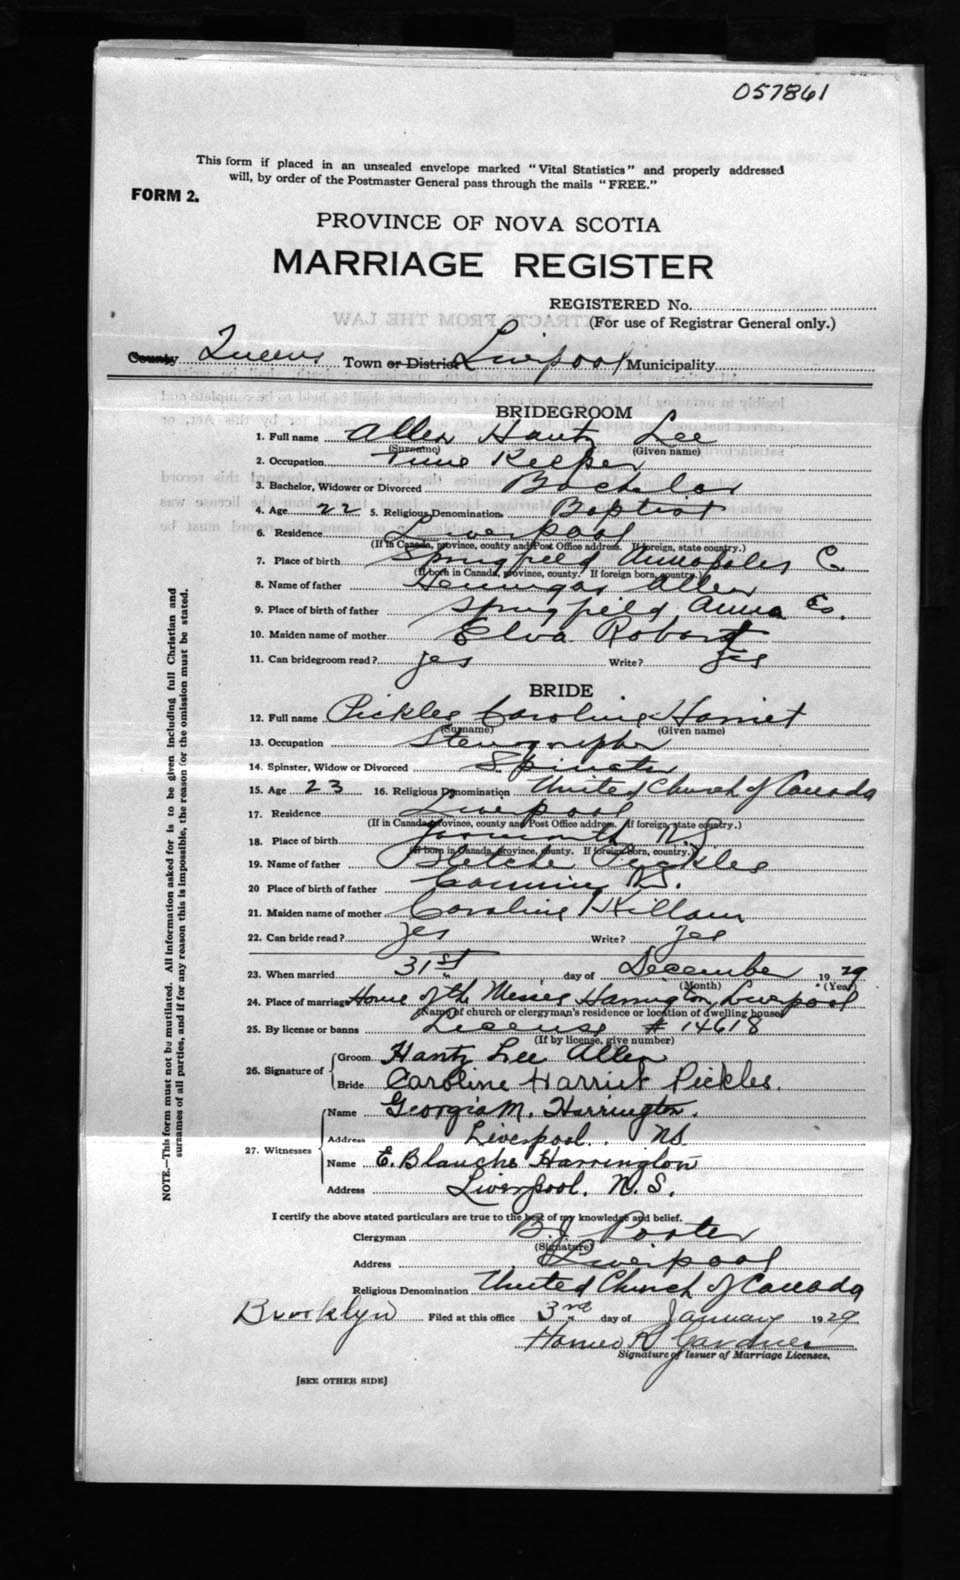 057861
This form if placed in an unsealed envelope marked "Vital Statistics" and properly addressed
will, by order of the Postmaster General pass through the mails "FREE."
FORM 2.
PROVINCE OF NOVA SCOTIA
MARRIAGE REGISTER
REGISTERED No.
(For use of Registrar General only.)
County Queens Town or District Liverpool Municipality
BRIDEGROOM
1. Full name Allen Hantz Lee
(Surname) (Given name)
2. Occupation Time Keeper
3. Bachelor, Widower or Divorced Bachelor
4. Age 22 5. Religious Denomination Baptist
6. Residence Liverpool
(If in Canada, province, county and Post Office address. If foreign, state country.)
7. Place of birth Springfield Annapolis C
(If born in Canada, province, county. If foreign born, country.)
8. Name of father Allen
9. Place of birth of father Springfield Anna Co.
10. Maiden name of mother Elva
11. Can bridegroom read? yes Write? yes
BRIDE
12. Full name Pickles Caroline Harriet
(Surname) (Given name)
13. Occupation Stenographer
14. Spinster, Widow or Divorced Spinster
15. Age 23 16. Religious Denomination United Church of Canada
17. Residence Liverpool
(If in Canada, province, county and Post Office address. If foreign, state country.)
18. Place of birth Yarmouth N.S
(If born in Canada, province, county. If foreign born, country.)
19. Name of father Pickles
20 Place of birth of father N.S.
21. Maiden name of mother Caroline Killam
22. Can bride read? yes Write? yes
23. When married 31st day of December 1929
(Month) (Year)
24. Place of marriage Home of the Misses Harrington, Liverpool
(Name of church or clergyman's residence or location of dwelling house)
25. By license or banns License # 14618
(If by license, give number)
26. Signature of Groom Hantz Lee Allen
Bride Caroline Harriet Pickles.
27. Witnesses Name Georgia M. Harrington.
Address Liverpool. NS
Name E. Blanche Harrington
Address Liverpool. N.S.
I certify the above stated particulars are true to the best of my knowledge and belief.
Clergyman B J Porter
(Signature)
Address Liverpool
Religious Denomination United Church of Canada
Brooklyn Filed at this office 3rd day of January 1929
Homer R Gardner
Signature of Issuer of Marriage Licenses.
[SEE OTHER SIDE]
NOTE.—This form must not be mutilated. All information asked for is to be given including full Christian and
surnames of all parties, and if for any reason this is impossible, the reason for the omission must be stated.